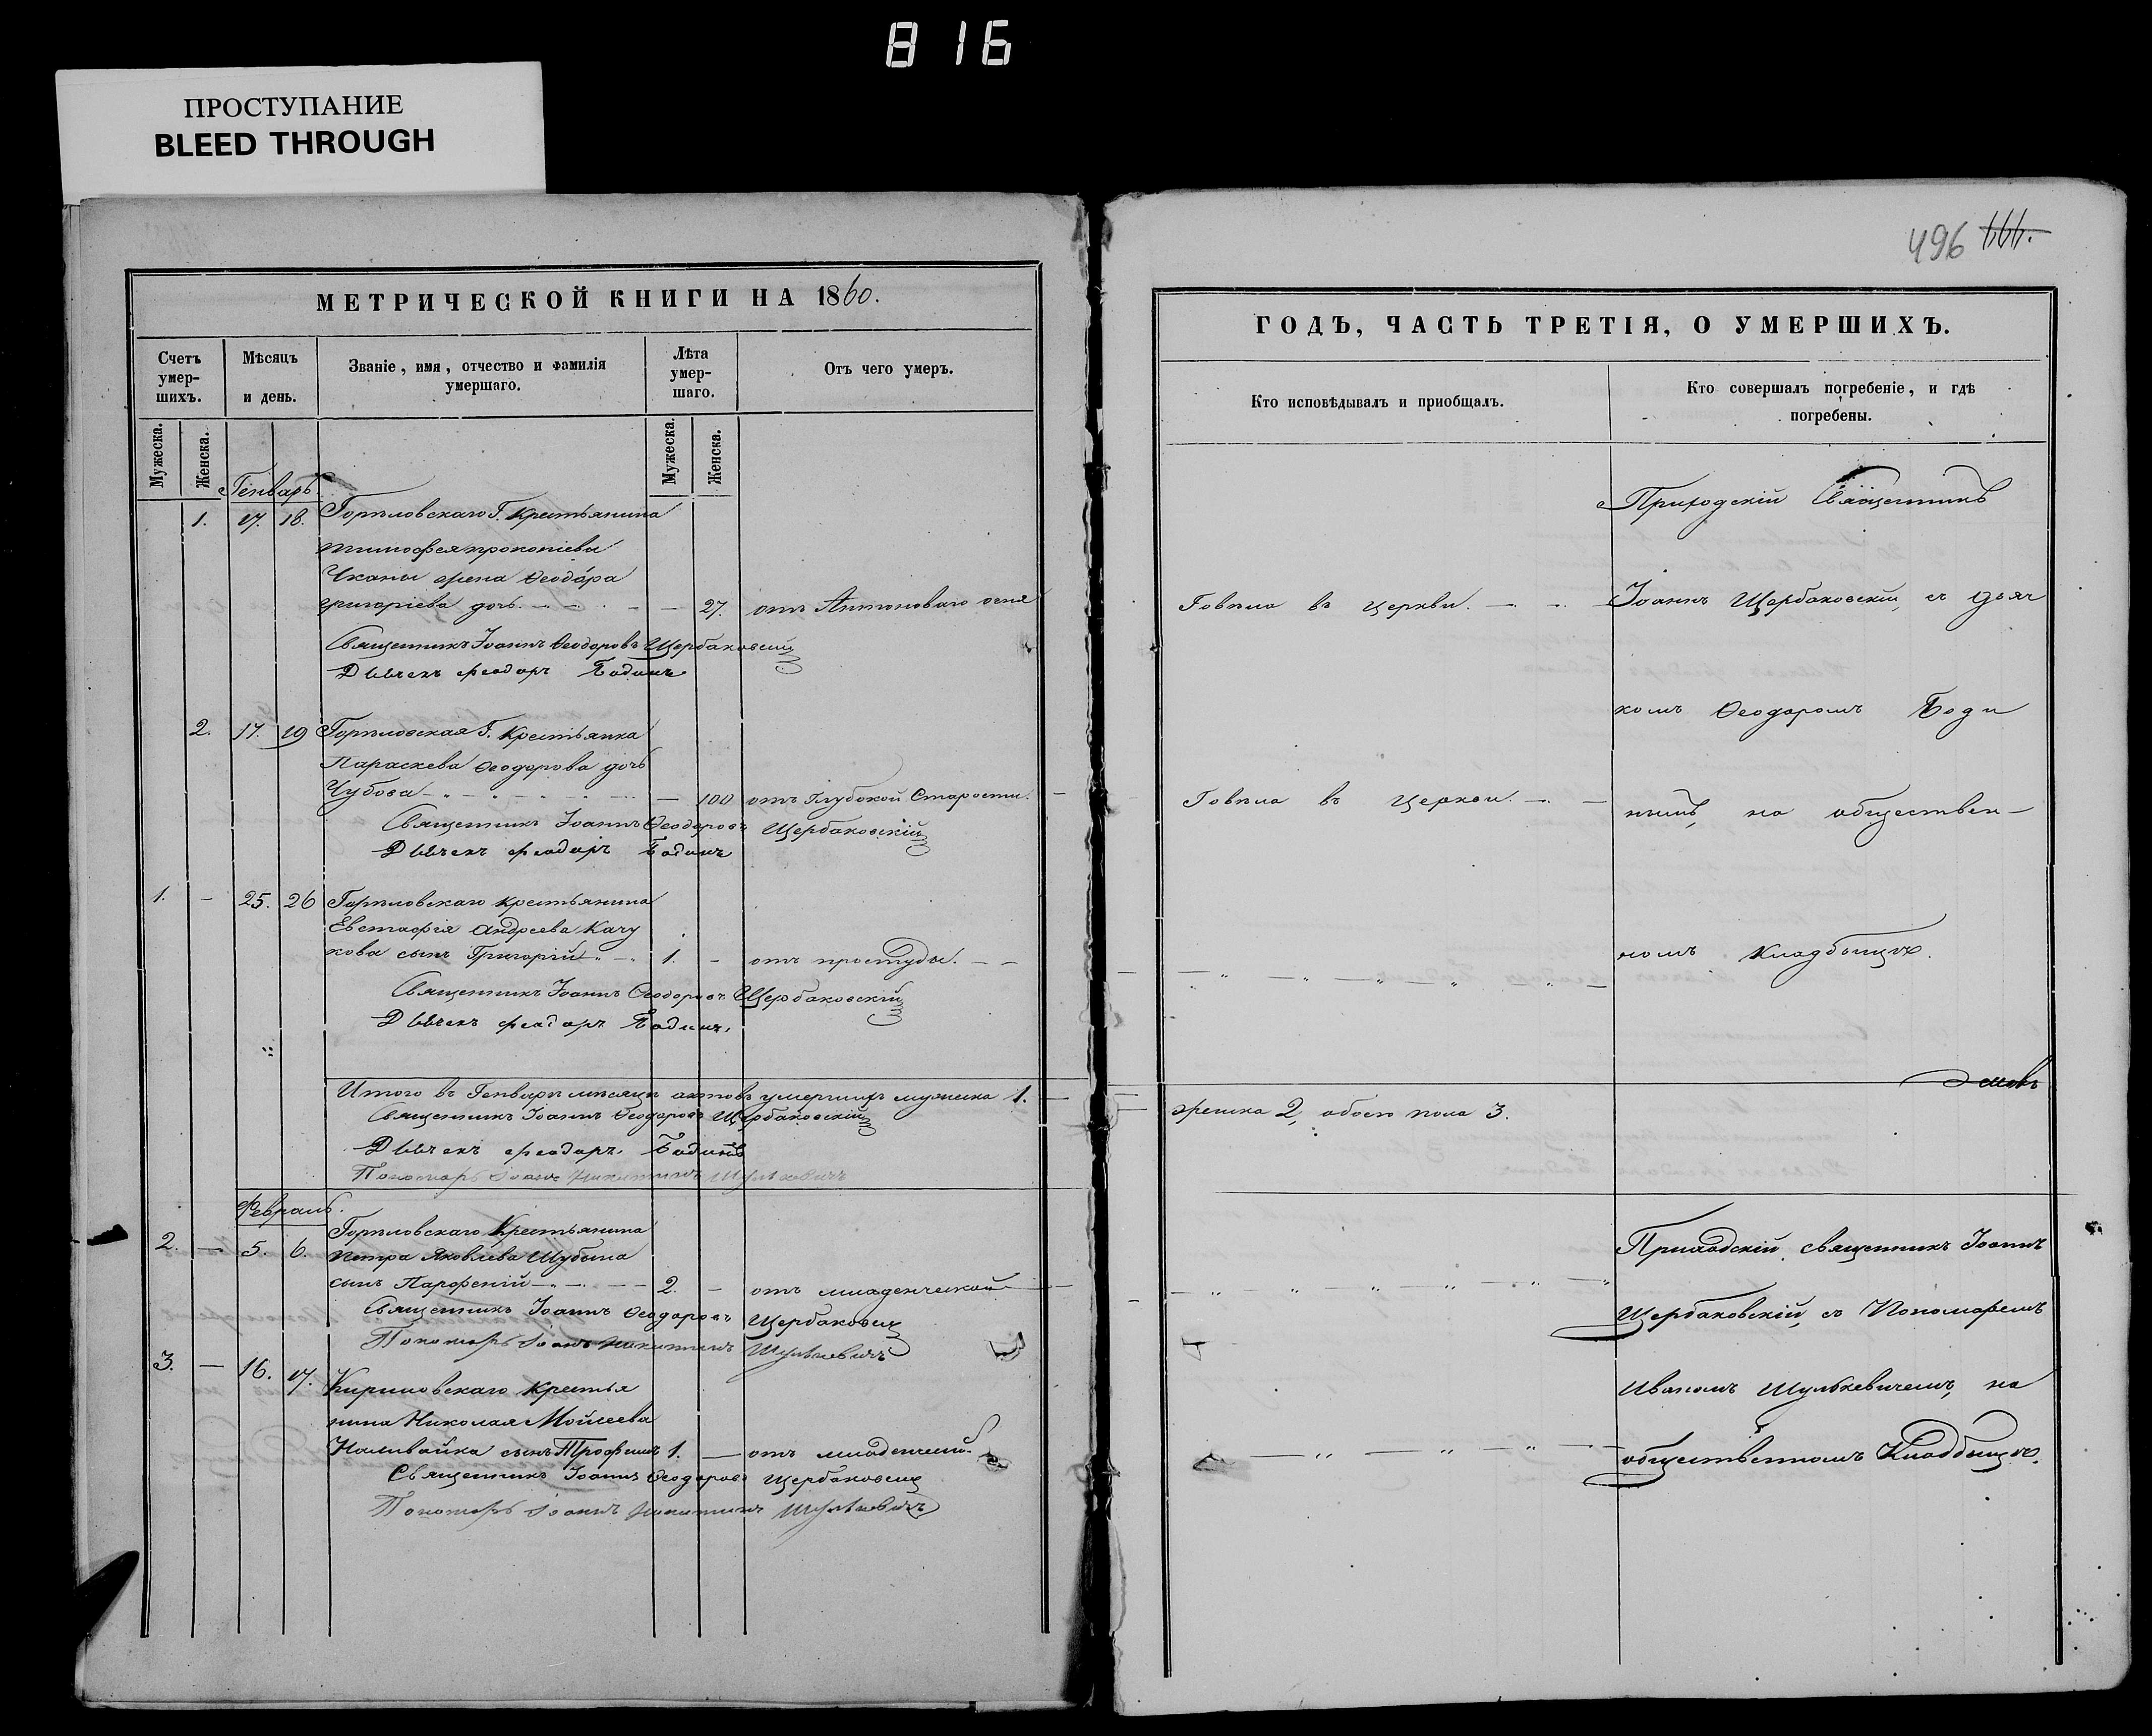 816
ПРОСТУПАНИЕ
BLEED THROUGH
496
МЕТРИЧЕСКОЙ КНИГИ НА 1860.
Счетъ умер-шихъ.
Мѣсяцъ и день.
Званіе, имя, отчество и фамилія умершаго.
Лѣта умер-шаго.
Отъ чего умеръ.
Мужеска.
Женска.
Мужеска.
Женска.
Генварь.
1. 17. 18. Горѣловскаго Г. Крестьянина
Тимофея прокопіева
Чканы жена Ѳеодора
григоріева дочь. 27. отъ Антоноваго огня
Священникъ Іоаннъ Ѳеодоровъ Щербаковскій
Дьячекъ Феодоръ Бодинъ
2. 17. 19 Горѣловская Г. Крестьянка
Параскева Ѳеодорова дочь
Чубова 100 отъ Глубокой Старости.
Священникъ Іоаннъ Ѳеодоровъ Щербаковскій
Дьячекъ Феодоръ Бодинъ
1. - 25. 26 Горѣловскаго крестьянина
Евстафія Андреева Качу
кова сынъ Григорій 1. - отъ простуды.
Священникъ Іоаннъ Ѳеодоровъ Щербаковскій
Дьячекъ Феодоръ Бодинъ.
Итого въ Генварѣ мѣсяцѣ актовъ умершихъ мужеска 1.
Священникъ Іоаннъ Ѳеодоровъ Щербаковскій
Дьячекъ Феодоръ Бодинъ
Пономарь Іоанъ Никитинъ Шулькевичъ
Февраль.
2. — 5. 6. Горѣловскаго Крестьянина
Петра Яковлева Шубина
сынъ Парфеній 2. - отъ младенческой
Священникъ Іоаннъ Ѳеодоровъ Щербаковскій
Пономарь Іоанъ Никитинъ Шулькевичъ
3. — 16. 17. Кириловскаго Крестья
нина Николая Мойсеева
Наливайка сынъ Трофимъ 1. — отъ младенческой
Священникъ Іоаннъ Ѳеодоровъ Щербаковскій
Пономарь Іоанъ Никитинъ Шулькевичъ
ГОДЪ, ЧАСТЬ ТРЕТІЯ, О УМЕРШИХЪ.
Кто исповѣдывалъ и приобщалъ.
Кто совершалъ погребеніе, и гдѣ погребены.
Приходскій Священникъ
Говѣла въ церкви. Іоаннъ Щербаковскій, съ дьяч
комъ Ѳеодоромъ Боди
Говѣла въ Церкви. нымъ, на обществен—
номъ Кладбищѣ.
женска 2, обоего пола 3.
Приходскій священникъ Іоаннъ
Щербаковскій, съ Пономаремъ
Иваномъ Шулькевичемъ, на
общественномъ Кладбищѣ.